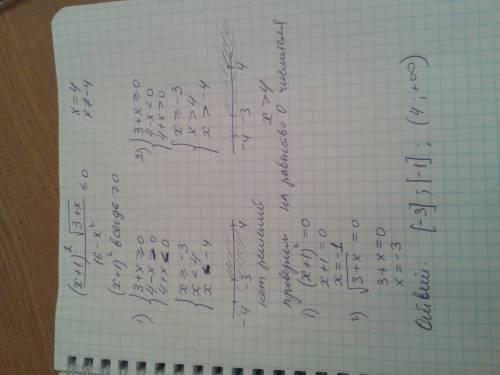 (x+1)² √3+x / 16 - x² ≤ 0
x = 4
x ≠ -4
(x+1)² всегда ≥ 0
1) { 3+x ≥ 0
4-x > 0
4+x < 0
{ x ≥ -3
x < 4
x < -4
-4 -3 4
нет решений
2) { 3+x ≥ 0
4-x < 0
4+x > 0
{ x ≥ -3
x > 4
x > -4
-4 -3 4
x > 4
проверим на равенство 0 числителя
1) (x+1)² = 0
x+1 = 0
x = -1
2) √3+x = 0
3+x = 0
x = -3
Ответ: [-3] ; [-1] ; (4 ; +∞)